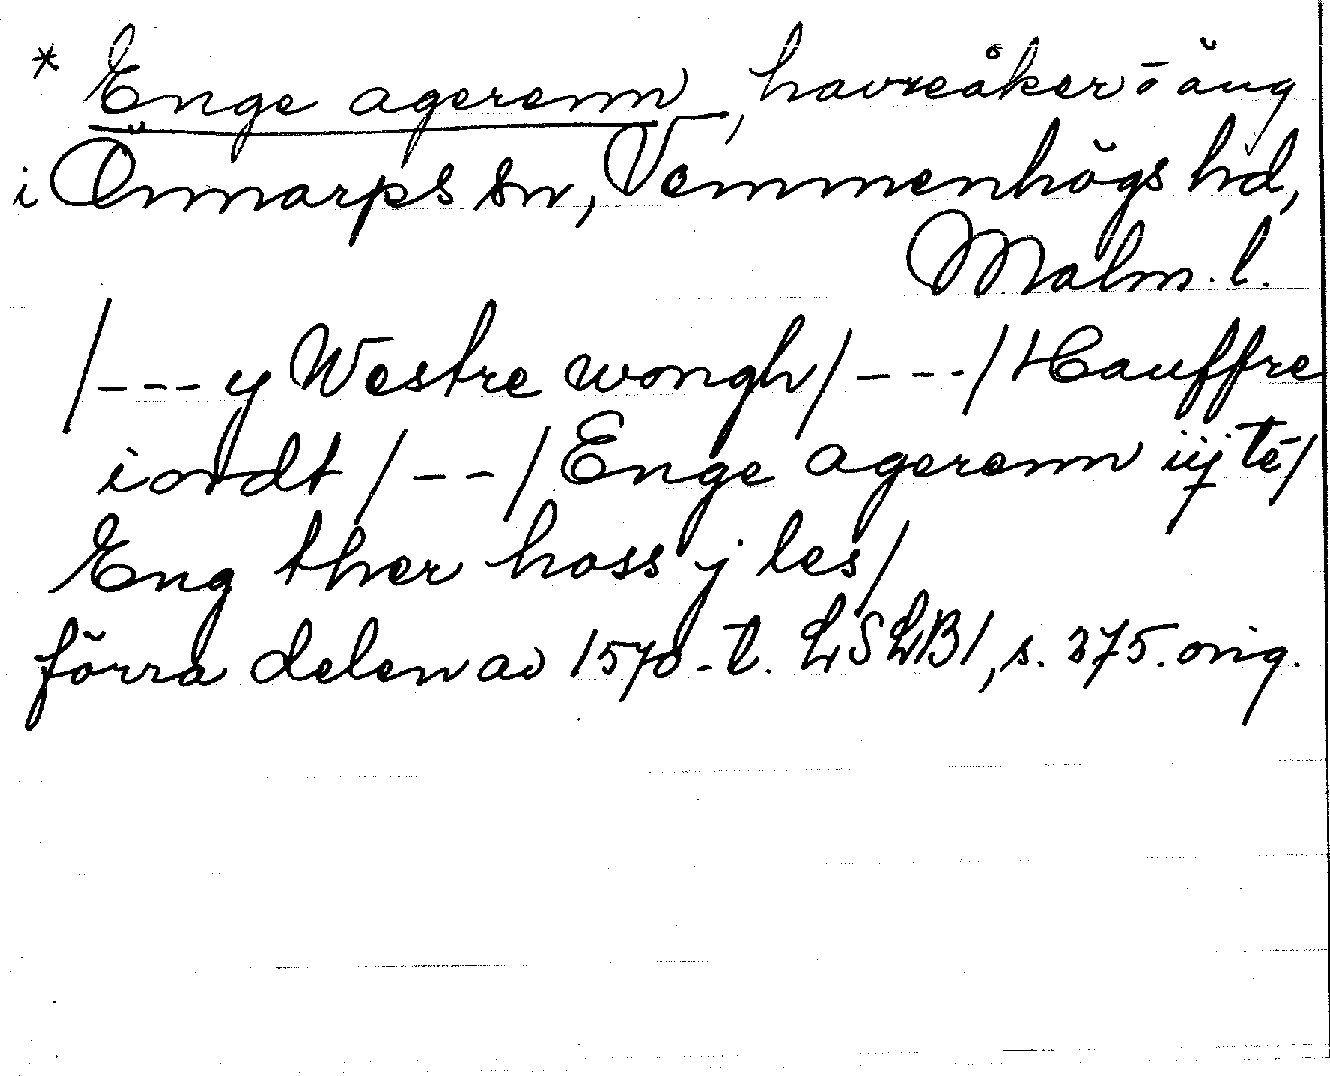 * Enge agerenn, havreåker o äng
i Önnarps sn, Vemmenhögs hd,
Malm. l.
/--- y Westre wongh/---/Hauffre
iordt/--/Enge agerenn iij te/
Eng ther hoss j les/
förra delen av 1570-t. LSLB1, s. 375. orig.